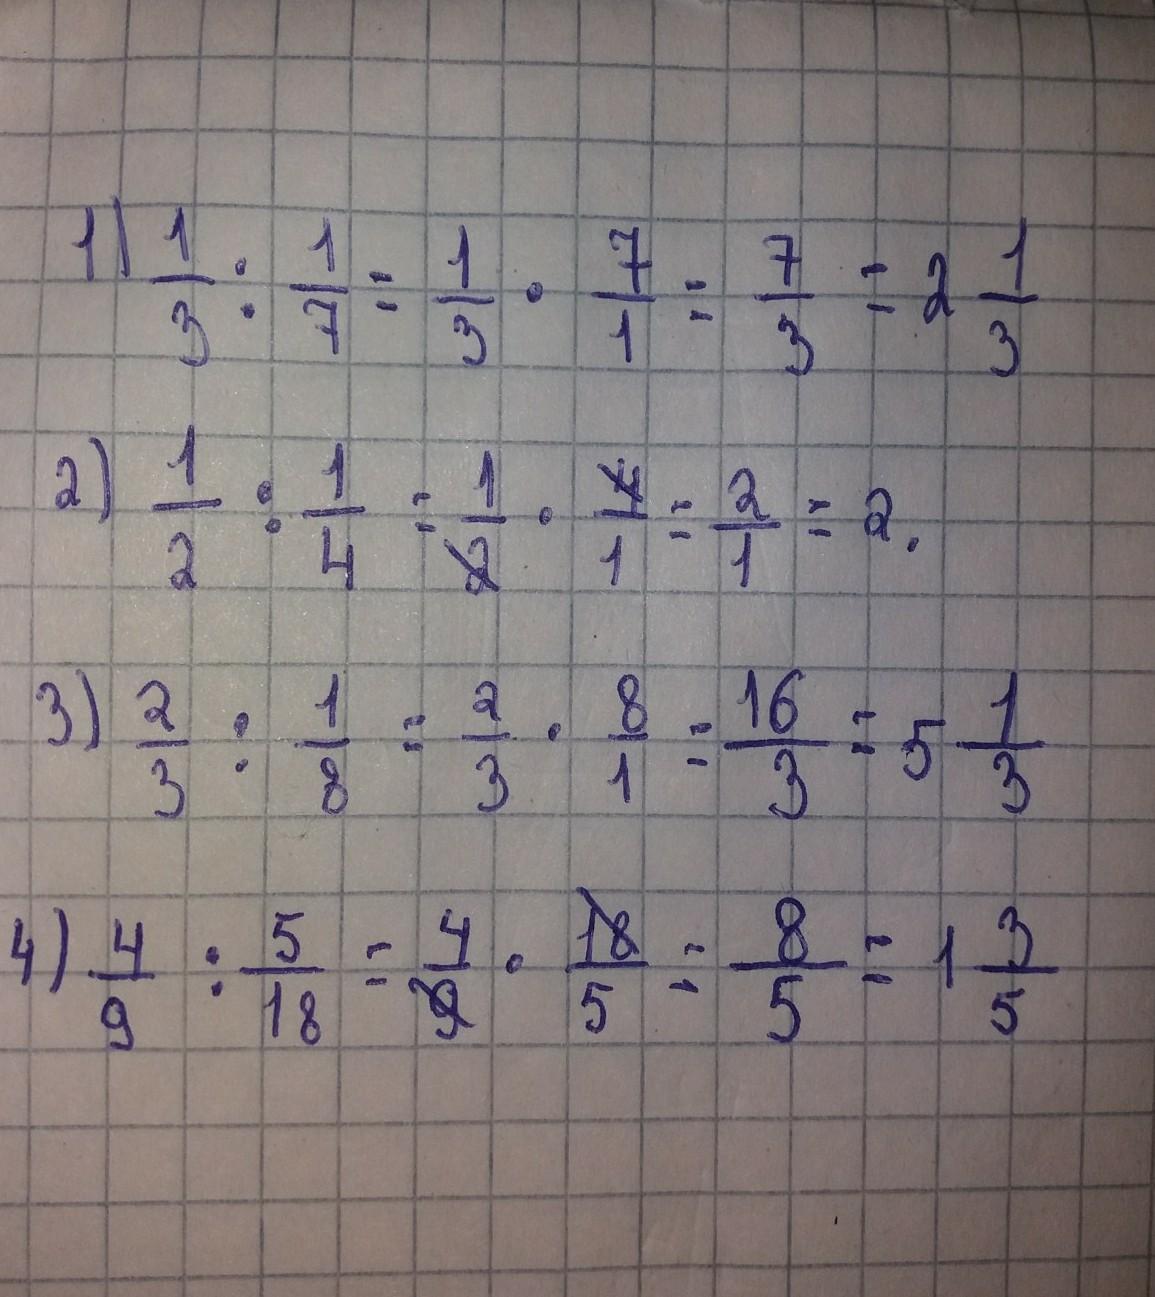 1) 1/3 : 1/7 = 1/3 · 7/1 = 7/3 = 2 1/3
2) 1/2 : 1/4 = 1/2 · 4/1 = 2/1 = 2.
3) 2/3 : 1/8 = 2/3 · 8/1 = 16/3 = 5 1/3
4) 4/9 : 5/18 = 4/9 · 18/5 = 8/5 = 1 3/5